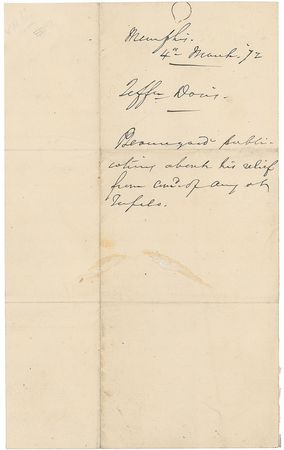 Memphis.
4th March '72
Jeffn Davis.
Beauregard's publi-
cations about his relief
from comd. of army at
Tupelo.